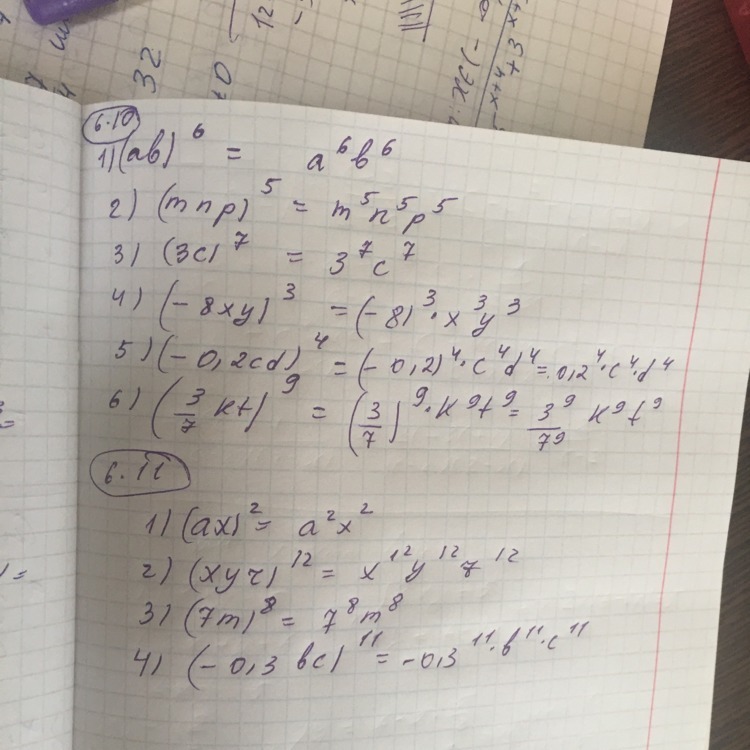 12
32
6.10
1) (ab)⁶ = a⁶b⁶
2) (mnp)⁵ = m⁵n⁵p⁵
3) (3c)⁷ = 3⁷c⁷
4) (-8xy)³ = (-8)³·x³y³
5) (-0,2cd)⁴ = (-0,2)⁴·c⁴d⁴ = 0,2⁴·c⁴·d⁴
6) (3/7 kt)⁹ = (3/7)⁹·k⁹t⁹ = 3⁹/7⁹ k⁹t⁹
6.11
1) (ax)² = a²x²
2) (xyz)¹² = x¹²y¹²z¹²
3) (7m)⁸ = 7⁸m⁸
4) (-0,3bc)¹¹ = -0,3¹¹·b¹¹·c¹¹